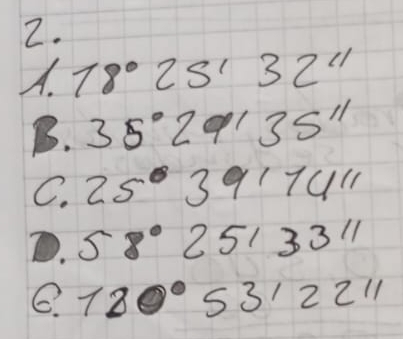 2.
A. 18° 25' 32"
B. 35° 29' 35"
C. 25° 39' 14"
D. 58° 25' 33"
E. 120° 53' 22"